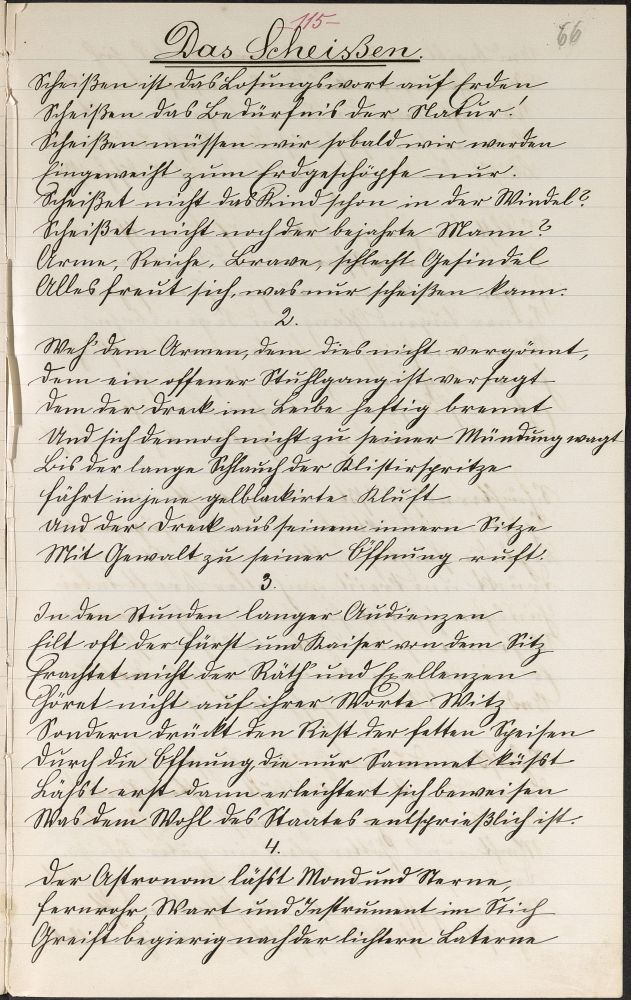 -115-
66
Das Scheissen.
Scheißen ist das Losungswort auf Erden
Scheißen das Bedürfnis der Natur!
Scheißen müssen wir sobald wir werden
Eingeweiht zum Erdgeschöpfe nur.
Scheißet nicht das Kind schon in der Windel?
Scheißet nicht noch der bejahrte Mann?
Arme, Reiche, Brave, schlecht Gesindel
Alles freut sich, was nur scheißen kann.
2.
Weh' dem Armen, dem dies nicht vergönnt,
Dem ein offener Stuhlgang ist versagt
Dem der Dreck im Leibe heftig brennt
Und sich dennoch nicht zu seiner Mündung wagt
Bis der lange Schlauch der Klistirspritze
Fährt in jene gelblackirte Kluft
Und der Dreck aus seinem innern Sitze
Mit Gewalt zu seiner Öffnung ruft!
3.
In den Stunden langer Audienzen
Eilt oft der Fürst und Kaiser von dem Sitz
Erachtet nicht der Räth' und Exellenzen
Höret nicht auf ihrer Worte Witz
Sondern drückt den Rest der fetten Speisen
Durch die Öffnung, die nur Sammet küsst
Lässt erst dann erleichtert sich beweisen
Was dem Wohl des Staates entsprießlich ist.
4.
Der Astronom lässt Mond und Sterne,
Fernrohr, Wart und Instrument im Stich
Greift begierig nach der lichtern Laterne